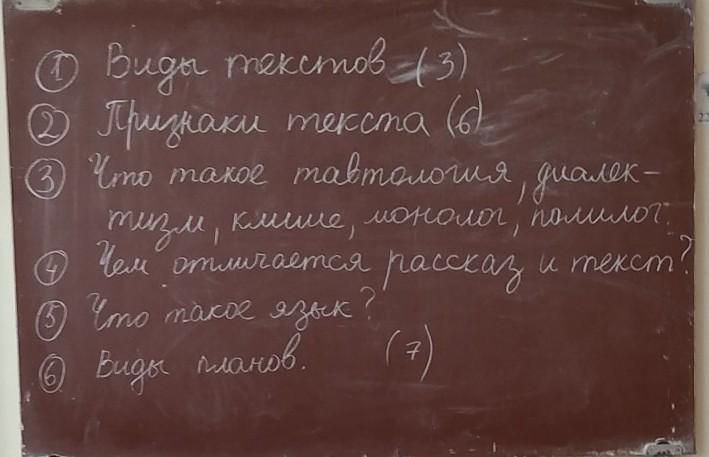 ① Виды текстов (3)
② Признаки текста (6)
③ Что такое тавтология, диалек-
тизм, клише, монолог, полилог.
④ Чем отличается рассказ и текст?
⑤ Что такое язык?
⑥ Виды планов. (7)